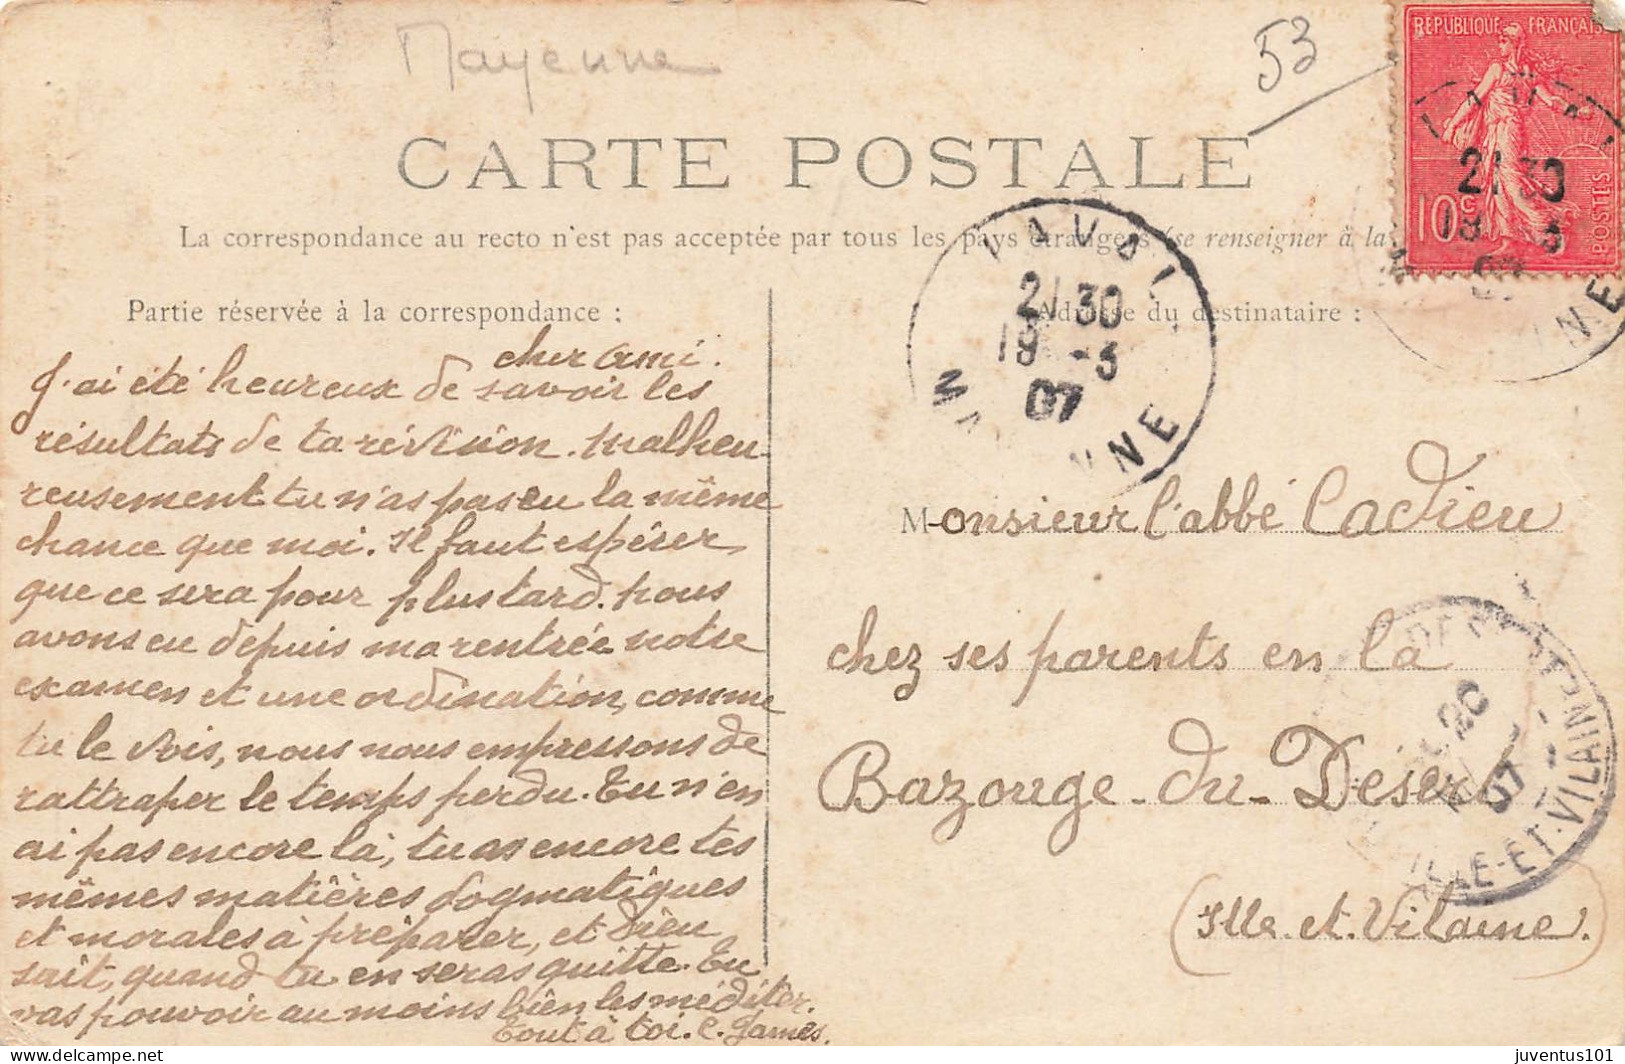 Mayenne
53
RÉPUBLIQUE FRANÇAISE
10c
POSTES
CARTE POSTALE
La correspondance au recto n'est pas acceptée par tous les pays étrangers (se renseigner à la
LAVAL
21 30
19 -3
07
MAYENNE
LAVAL
21 30
19 3
07
NE
Partie réservée à la correspondance :
cher ami.
J'ai été heureux de savoir les
résultats de ta révision. Malheu-
reusement tu n'as pas eu la même
chance que moi. Il faut espérer
que ce sera pour plus tard. Nous
avons eu depuis ma rentrée notre
examen et une ordination, comme
tu le vois, nous nous empressons de
rattraper le temps perdu. Tu n'en
ai pas encore là, tu as encore tes
mêmes matières dogmatiques
et morales à préparer, et Dieu
sait, quand tu en seras quitte. Tu
vas pouvoir au moins bien les méditer.
Tout à toi. C. James.
Adresse du destinataire :
Monsieur l'abbé Cadieu
chez ses parents en la
Bazouge-du-Désert
(Ille et Vilaine.)
20
07
ILLE-ET-VILAINE
juventus101
delcampe.net